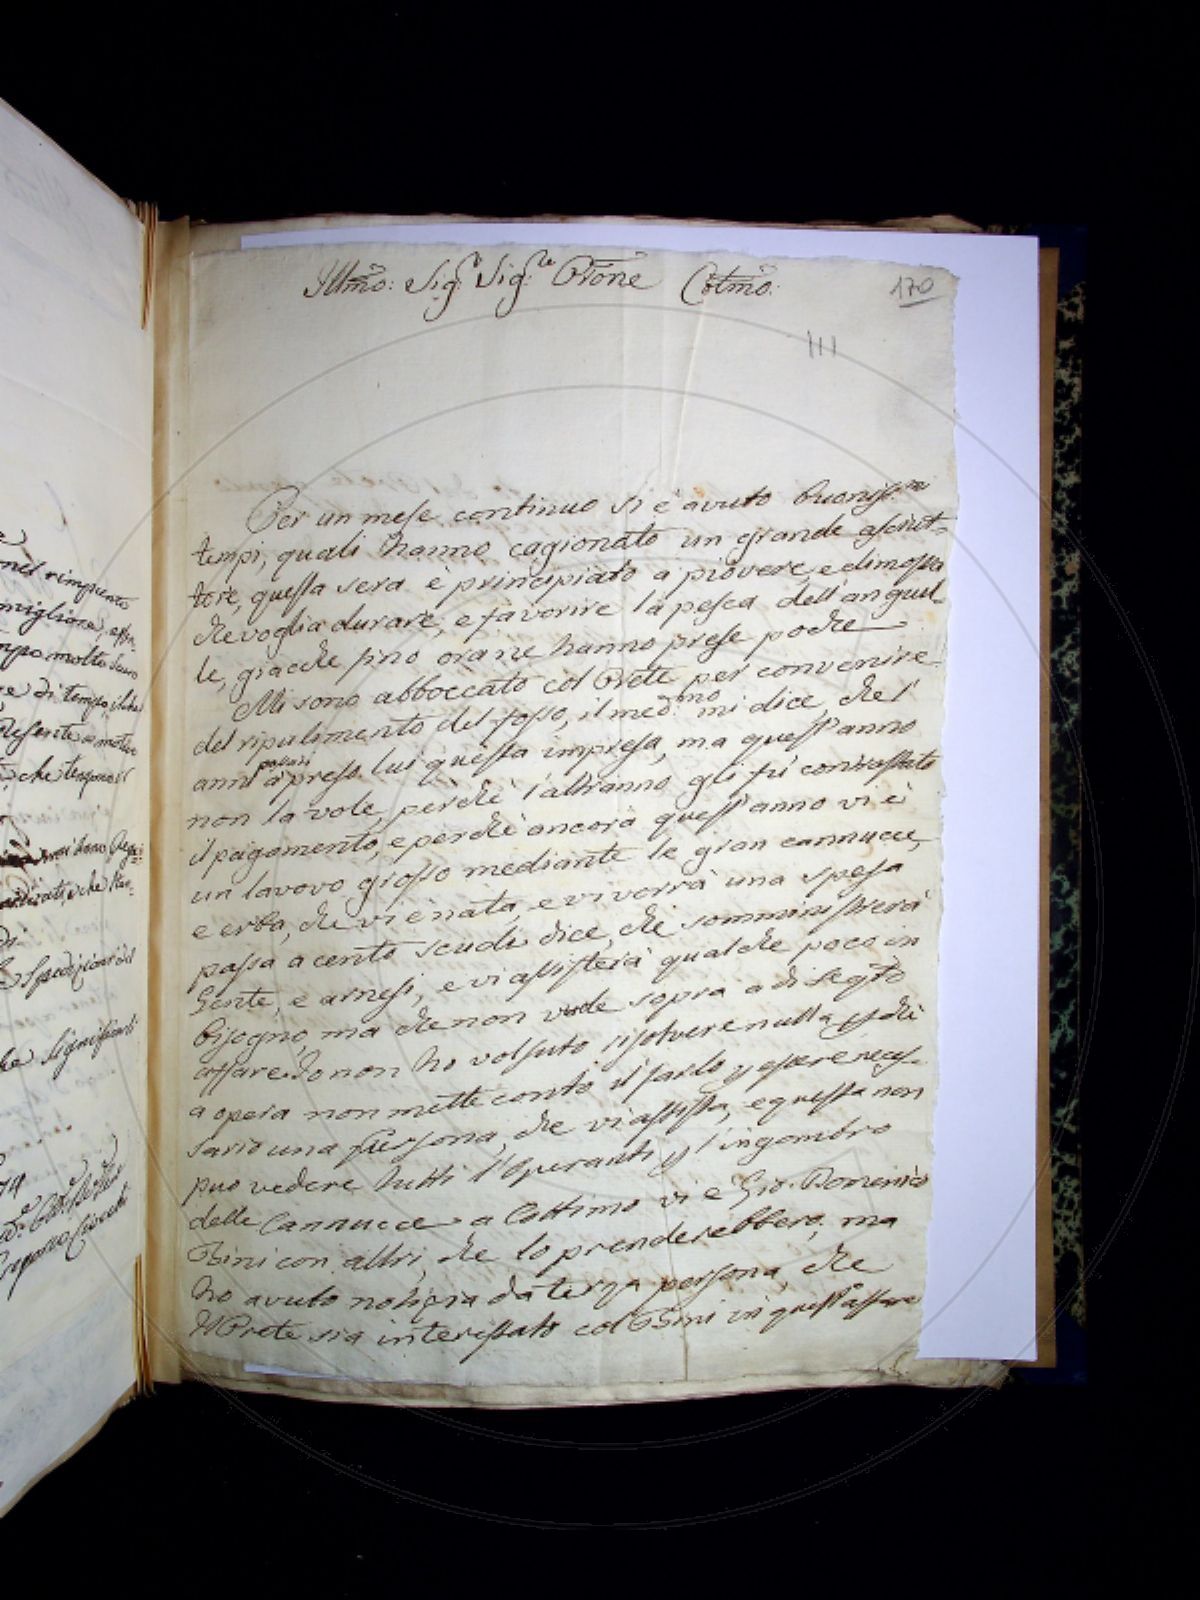 Illmo: Sig.r Sig.re Prone Colmo:
170
111
Per un mese continuo si è avuto buoniss.mi
tempi, quali hanno cagionato un grande asciut-
tore, questa sera è principiato a piovere, e dimostra
che voglia durare, e favorire la pesca dell'anguil-
le, giacche fino ora ne hanno prese poche
Mi sono abboccato col Prete per convenire
del ripulimento del fosso, il med.mo mi dice, che l'
anni passati à preso lui questa impresa, ma quest'anno
non la vole, perchè l'altr'anno gli fù contrastato
il pagamento, e perchè ancora quest'anno vi è
un lavoro grosso mediante le gran cannucce,
e erba, che vi è nata, e vi vorrà una spesa
passa a cento scudi dice, che somministrerà
Gente, e arnesi, e vi assisterà qualche poco in
bisogno, ma che non vuole sopra a di se q.to
affare. Io non ho volsuto risolvere nulla, p. chè
a opera non mette conto il farlo p. essere neces-
sario una persona, che vi assista, e questa non
puo vedere tutti l'Operanti p. l'ingombro
delle Cannucce a Cottimo vi è Gio. Domenico
Bini con altri, che lo prenderebbero, ma
ho avuto notizia da terza persona, che
Il Prete sia interessato col Bini in quest'affare
nel rimanente
migliore,
tempo molto
di tempo, il che
che tengono il
Spedizioni del
che significarli
Gregorio